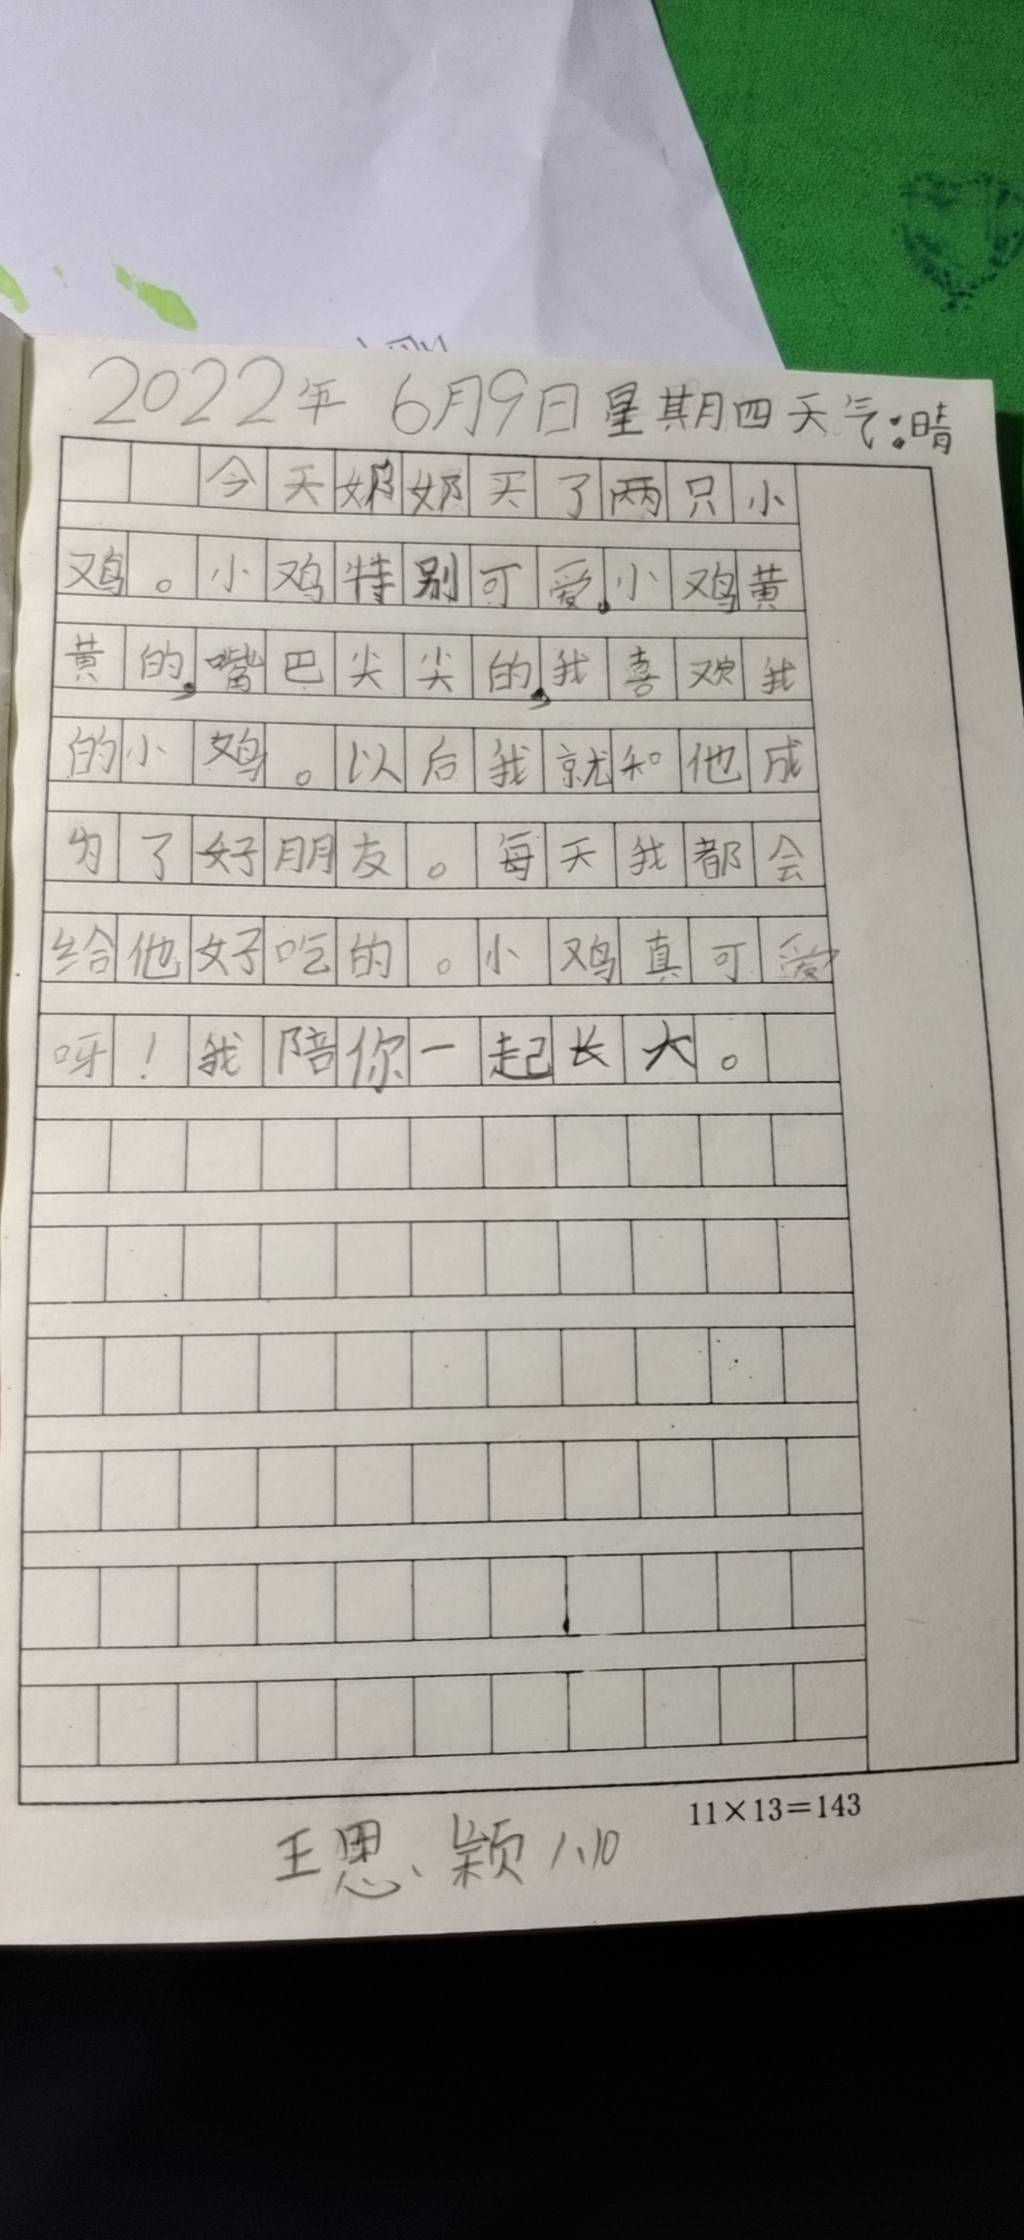 2022年 6月9日星期四天气:晴
今天奶奶买了两只小
鸡。小鸡特别可爱,小鸡黄
黄的,嘴巴尖尖的,我喜欢我
的小鸡。以后我就和他成
为了好朋友。每天我都会
给他好吃的。小鸡真可爱
呀!我陪你一起长大。
11×13=143
王思颖 1.10